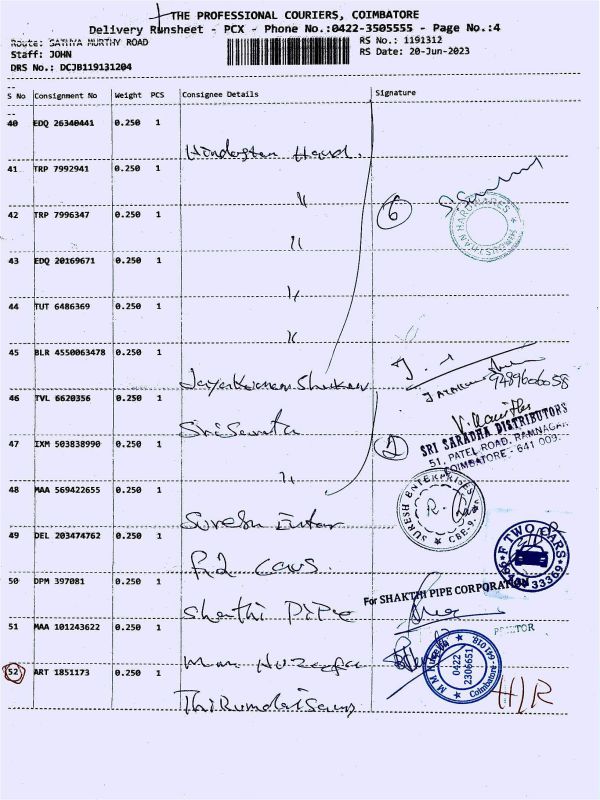 THE PROFESSIONAL COURIERS, COIMBATORE
Delivery Runsheet - PCX - Phone No.:0422-3505555 - Page No.:4
Route: SATHYA MURTHY ROAD
RS No.: 1191312
Staff: JOHN
RS Date: 20-Jun-2023
DRS No.: DCJB119131204
S No Consignment No Weight PCS Consignee Details Signature
40 EDQ 26340441 0.250 1
Hindustan Hard.
41 TRP 7992941 0.250 1
〃
42 TRP 7996347 0.250 1
6
HINDUSTAN HARDWARES
〃
43 EDQ 20169671 0.250 1
〃
44 TUT 6486369 0.250 1
〃
45 BLR 4550063478 0.250 1
9489606058
46 TVL 6620356 0.250 1
2
SRI SARADHA DISTRIBUTORS
51, PATEL ROAD, RAMNAGAR
COIMBATORE - 641 009.
47 IXM 503838990 0.250 1
〃
48 MAA 569422655 0.250 1
SURESH ENTERPRISES
CBE-9.
Suresh Enter
49 DEL 203474762 0.250 1
F TWO CARS
33369
F2 Cars.
50 DPM 397081 0.250 1
For SHAKTHI PIPE CORPORATION
Shakthi PiPe
51 MAA 101243622 0.250 1
0422
2306651
Coimbatore
641 018
52 ART 1851173 0.250 1
H/R